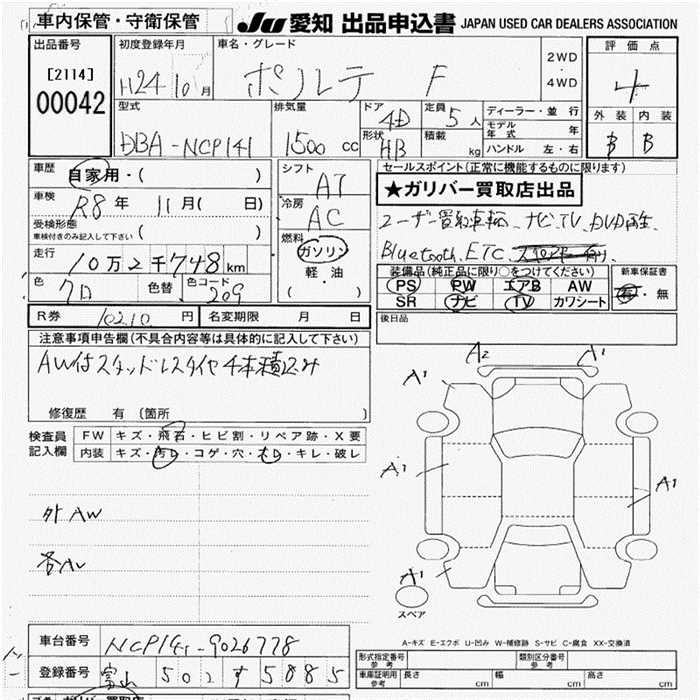 車内保管・守衛保管
JU 愛知 出品申込書 JAPAN USED CAR DEALERS ASSOCIATION
出品番号
[2114]
00042
初度登録年月
H24 10月
車名・グレード
ポルテ F
2WD
・
4WD
評価点
4
外装 内装
B B
型式
DBA-NCP141
排気量
1500 cc
ドア
4D
形状
HB
定員
5人
積載
kg
ディーラー・並行
モデル年式 年
ハンドル 左・右
車歴
自家用・( )
車検
R8年 11月( 日)
受検形態
車検付きのみ記入して下さい
( )
走行
10万2千748km
色
クロ
色替
色コード
209
シフト
AT
冷房
AC
燃料
ガソリン
軽・油
( )
セールスポイント(正常に機能するものに限ります)
★ガリバー買取店出品
ユーザー買取車輌、ナビ、TV、DVD再生、
Bluetooth、ETC
装備品(純正品に限り○をつけてください)
PS PW エアB AW
SR ナビ TV カワシート
新車保証書
有・無
後日品
R券 10210 円
名変期限 月 日
注意事項申告欄(不具合内容等は具体的に記入して下さい)
AW付スタッドレスタイヤ4本積込み
修復歴 有 〔箇所 〕
検査員
記入欄
FW キズ・飛石・ヒビ割・リペア跡・X要
内装 キズ・汚れ・コゲ・穴・スレ・キレ・破レ
外AW
A2 A1
A1
A1
A1
A1
スペア
A-キズ E-エクボ U-凹み W-補修跡 S-サビ C-腐食 XX-交換済
車台番号
NCP141-9026778
登録番号
富山 502 す 5885
形式指定番号
参考
類別区分番号
参考
車庫証明用
参考
長さ cm 幅 cm 高さ cm